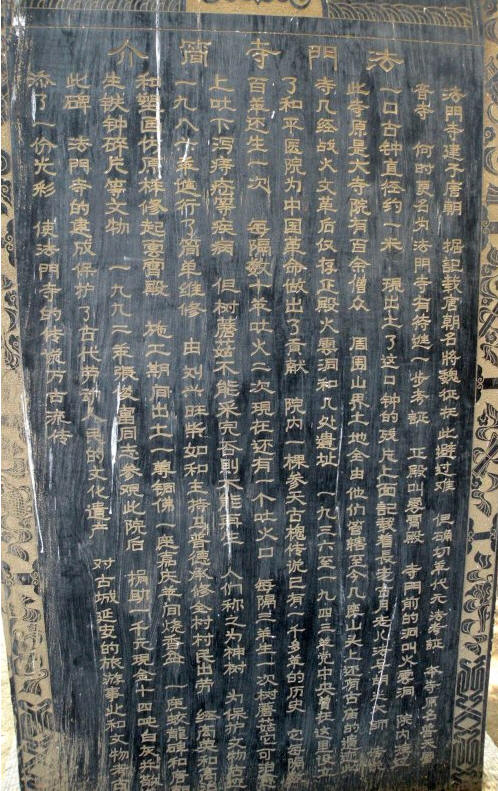 法門寺簡介
法門寺建于唐朝 据記载唐朝名将魏征在此避过难 但确切年代无法考証 本寺原名普天
寄寺 何时更名为法門寺有待進一步考証 正殿叫雲霄殿 寺門前的洞叫火雲洞 院内建有
一口古钟直径约一米 現出土了这口钟的残片上面記载着長老古月老人法号明
此寺原是大寺院有百余僧众 周圍山界土地全由他们管轄至今几座山头上还有古庙的遗迹
寺几经战火文革后仅存正殿火雲洞和几处遺址 一九三六至一九四三年党中央曾在这里設立
了和平医院为中国革命做出了贡献 院内一棵参天古槐传说已有一个多年的历史 它每隔数
百年还生一次 每隔数十年吐火一次現在还有一个吐火口 每隔三年生一次树蘑菇它可治
上吐下泻痔疮等疾病 但树蘑菇不能采完否則不再生 人们称之为神树 为保护文物古迹
一九八六年進行了简单维修 由刘兴旺柴如和主持馬普德承修全村村民出劳 经高英和高
和 国 原样修起雲霄殿 施工期间出土一尊铜佛 一座嘉庆年间烧香盆 一座蛟龍碑和唐
生铁钟碎片等文物 一九九二年張俊富同志参观此院后 捐助一千元現金十四吨白灰并敬
此碑 法門寺的建成保护了古代劳动人民的文化遗产 对古城延安的旅游事业和文物考古
添了一份光彩 使法門寺的传説万古流传